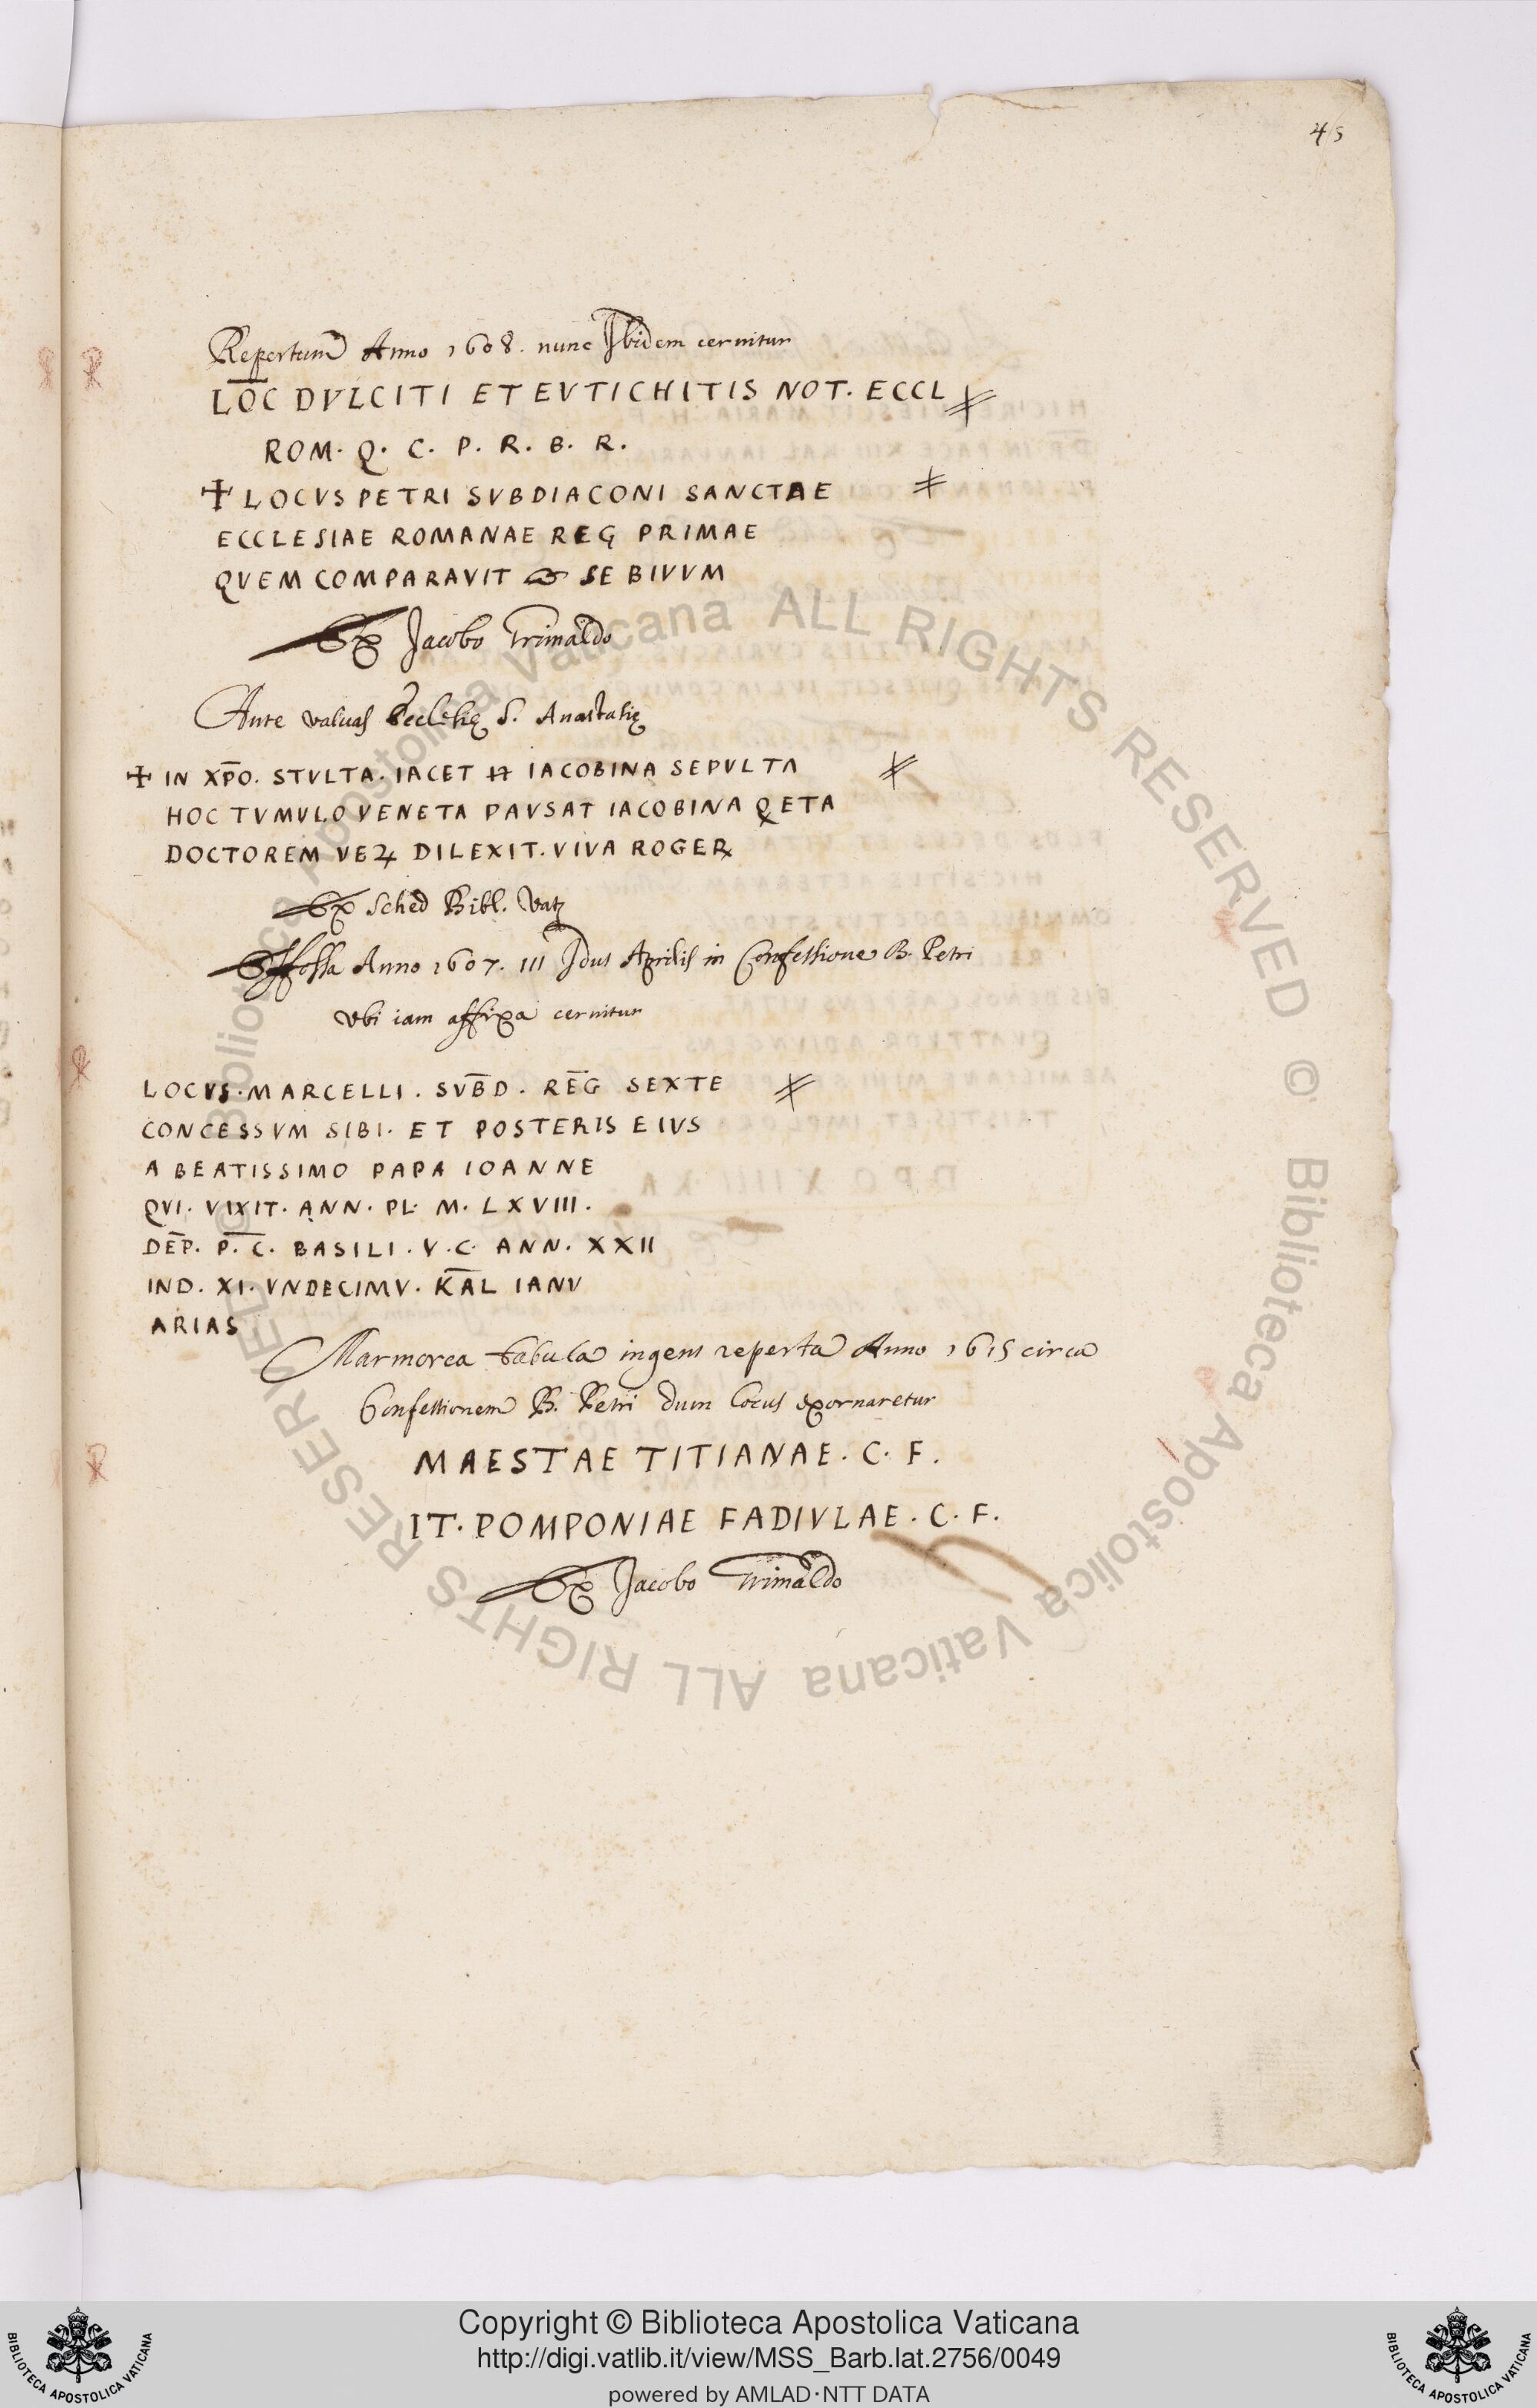 45
Repertum Anno 1608. nunc Ibidem cernitur
LOC DVLCITI ET EVTICHITIS NOT. ECCL
ROM. Q. C. P. R. B. R.
✝ LOCVS PETRI SVBDIACONI SANCTAE
ECCLESIAE ROMANAE REG PRIMAE
QVEM COMPARAVIT SE BIVVM
Ex Jacobo Grimaldo
Ante valuas Ecclesię S. Anastasię
✝ IN XP̄O. STVLTA. IACET IACOBINA SEPVLTA
HOC TVMVLO VENETA PAVSAT IACOBINA QETA
DOCTOREM VEꝜ DILEXIT. VIVA ROGER
Ex Sched Bibl. Vat
Effossa Anno 1607. III Idus Aprilis in Confessione B. Petri
vbi iam affixa cernitur
LOCVS. MARCELLI. SVB̄D. REḠ SEXTE
CONCESSVM SIBI. ET POSTERIS EIVS
A BEATISSIMO PAPA IOANNE
QVI. VIXIT. ANN. PL. M. LXVIII.
DEP̄. P. C̄. BASILI. V. C. ANN. XXII
IND. XI. VNDECIMV. K̄AL IANV
ARIAS
Marmorea tabula ingens reperta Anno 1615 circa
Confessionem B. Petri dum locus exornaretur
MAESTAE TITIANAE. C. F.
IT. POMPONIAE FADIVLAE. C. F.
Ex Jacobo Grimaldo
© Biblioteca Apostolica Vaticana ALL RIGHTS RESERVED
© Biblioteca Apostolica Vaticana ALL RIGHTS RESERVED
Copyright © Biblioteca Apostolica Vaticana
http://digi.vatlib.it/view/MSS_Barb.lat.2756/0049
powered by AMLAD·NTT DATA
BIBLIOTECA APOSTOLICA VATICANA
BIBLIOTECA APOSTOLICA VATICANA